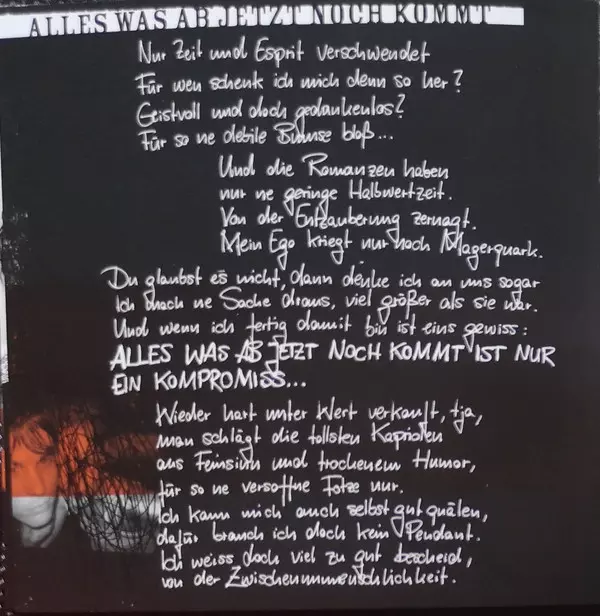 ALLES WAS AB JETZT NOCH KOMMT
Nur Zeit und Esprit verschwendet
Für wen schenk ich mich denn so her?
Geistvoll und doch gedankenlos?
Für so ne debile Bumse bloß...
Und die Romanzen haben
nur ne geringe Halbwertzeit.
Von der Entzauberung zernagt.
Mein Ego kriegt nur noch Magerquark.
Du glaubst es nicht, dann denke ich an uns sogar
Ich mach ne Sache draus, viel größer als sie war.
Und wenn ich fertig damit bin ist eins gewiss:
ALLES WAS AB JETZT NOCH KOMMT IST NUR
EIN KOMPROMISS...
Wieder hart unter Wert verkauft, tja,
man schlägt die tollsten Kapriolen
aus Feinsinn und trockenem Humor,
für so ne versoffne Fotze nur.
Ich kann mich auch selbst gut quälen,
dafür brauch ich doch kein Pendant.
Ich weiss doch viel zu gut bescheid,
von der Zwischenunmenschlichkeit.